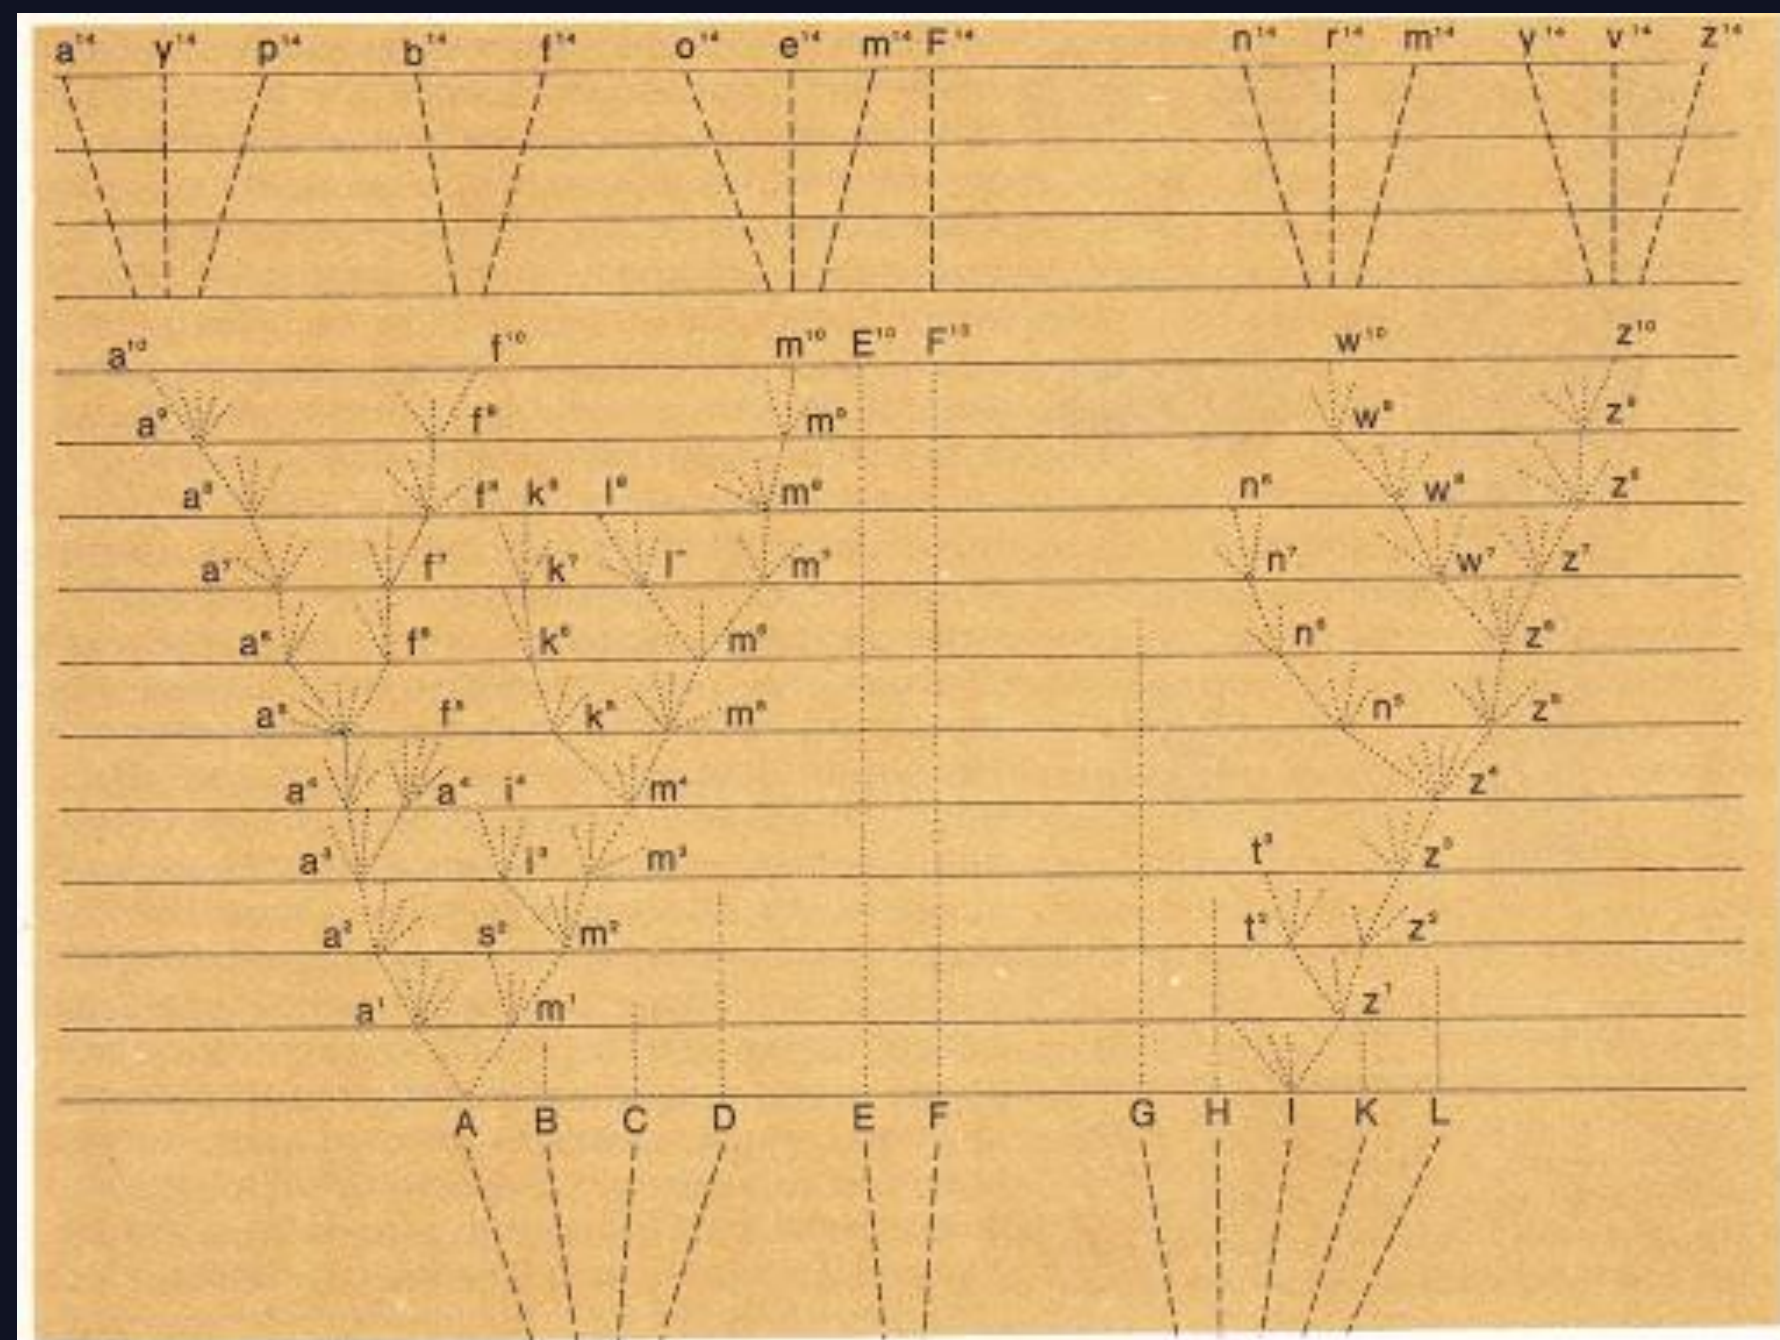 a¹⁴ y¹⁴ p¹⁴ b¹⁴ f¹⁴ o¹⁴ e¹⁴ m¹⁴ F¹⁴ n¹⁴ r¹⁴ m¹⁴ y¹⁴ v¹⁴ z¹⁴
a¹⁰ f¹⁰ m¹⁰ E¹⁰ F¹⁰ w¹⁰ z¹⁰
a⁹ f⁹ m⁹ w⁹ z⁹
a⁸ f⁸ k⁸ l⁸ m⁸ n⁸ w⁸ z⁸
a⁷ f⁷ k⁷ l⁷ m⁷ n⁷ w⁷ z⁷
a⁶ f⁶ k⁶ m⁶ n⁶ z⁶
a⁵ f⁵ k⁵ m⁵ n⁵ z⁵
a⁴ a⁴ i⁴ m⁴ z⁴
a³ i³ m³ t³ z³
a² s² m² t² z²
a¹ m¹ z¹
A B C D E F G H I K L